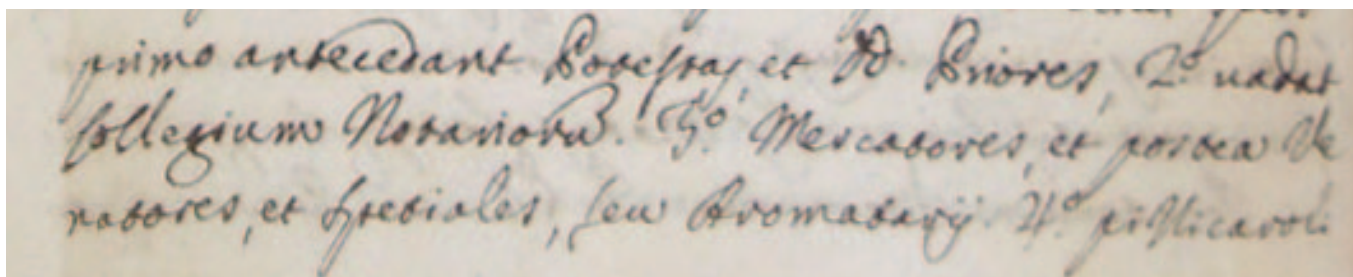 primo antecedant Potestas, et DD. Priores, 2.º vadat
Collegium Notariorũ. 3.º Mercatores, et postea Ve
natores, et Spetiales, seu Aromatarij. 4.º pissicaroli